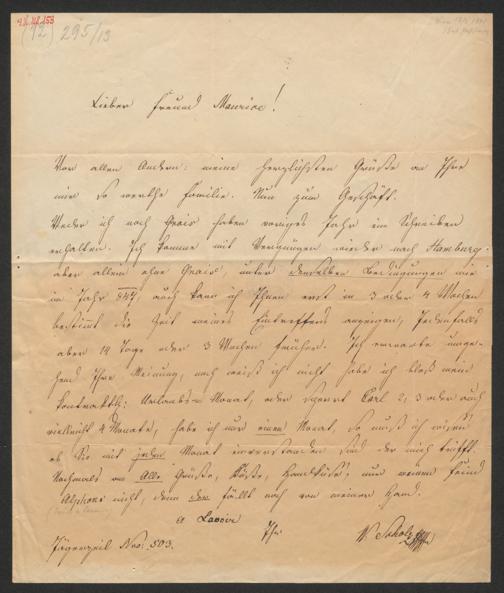 (42) 295/13
Lieber Freund Maurice!
Vor allen Andern: meine herzlichsten Grüße an Ihre
mir so werthe Familie. Nun zum Geschäft.
Weder ich noch Grois haben voriges Jahr ein Schreiben
erhalten. Ich komme mit Vergnügen wieder nach Hamburg,
aber allein ohne Grois, unter denselben Bedingungen wie
im Jahr 847, auch kann ich Ihnen erst in 3 oder 4 Wochen
bestimt die Zeit meines Eintreffens anzeigen, jedenfalls
aber 14 Tage oder 3 Wochen früher. Ich erwarte umge-
hend Ihre Meinung, noch weiß ich nicht habe ich bloß mein
Kontraktl: Urlaubs-Monat, oder sperrt Carl 2, 3 oder auch
vielleicht 4 Monate, habe ich nur einen Monat, so muß ich wissen
ob Sie mit jeden Monat einverstanden sind der mich trifft.
Nochmals an Alle Grüße, Küße, Handküße, nur meinen Feind
Alphons nicht, denn der fällt noch von meiner Hand.
Ihr
W. Scholz
Jägerzeil Nro: 503.